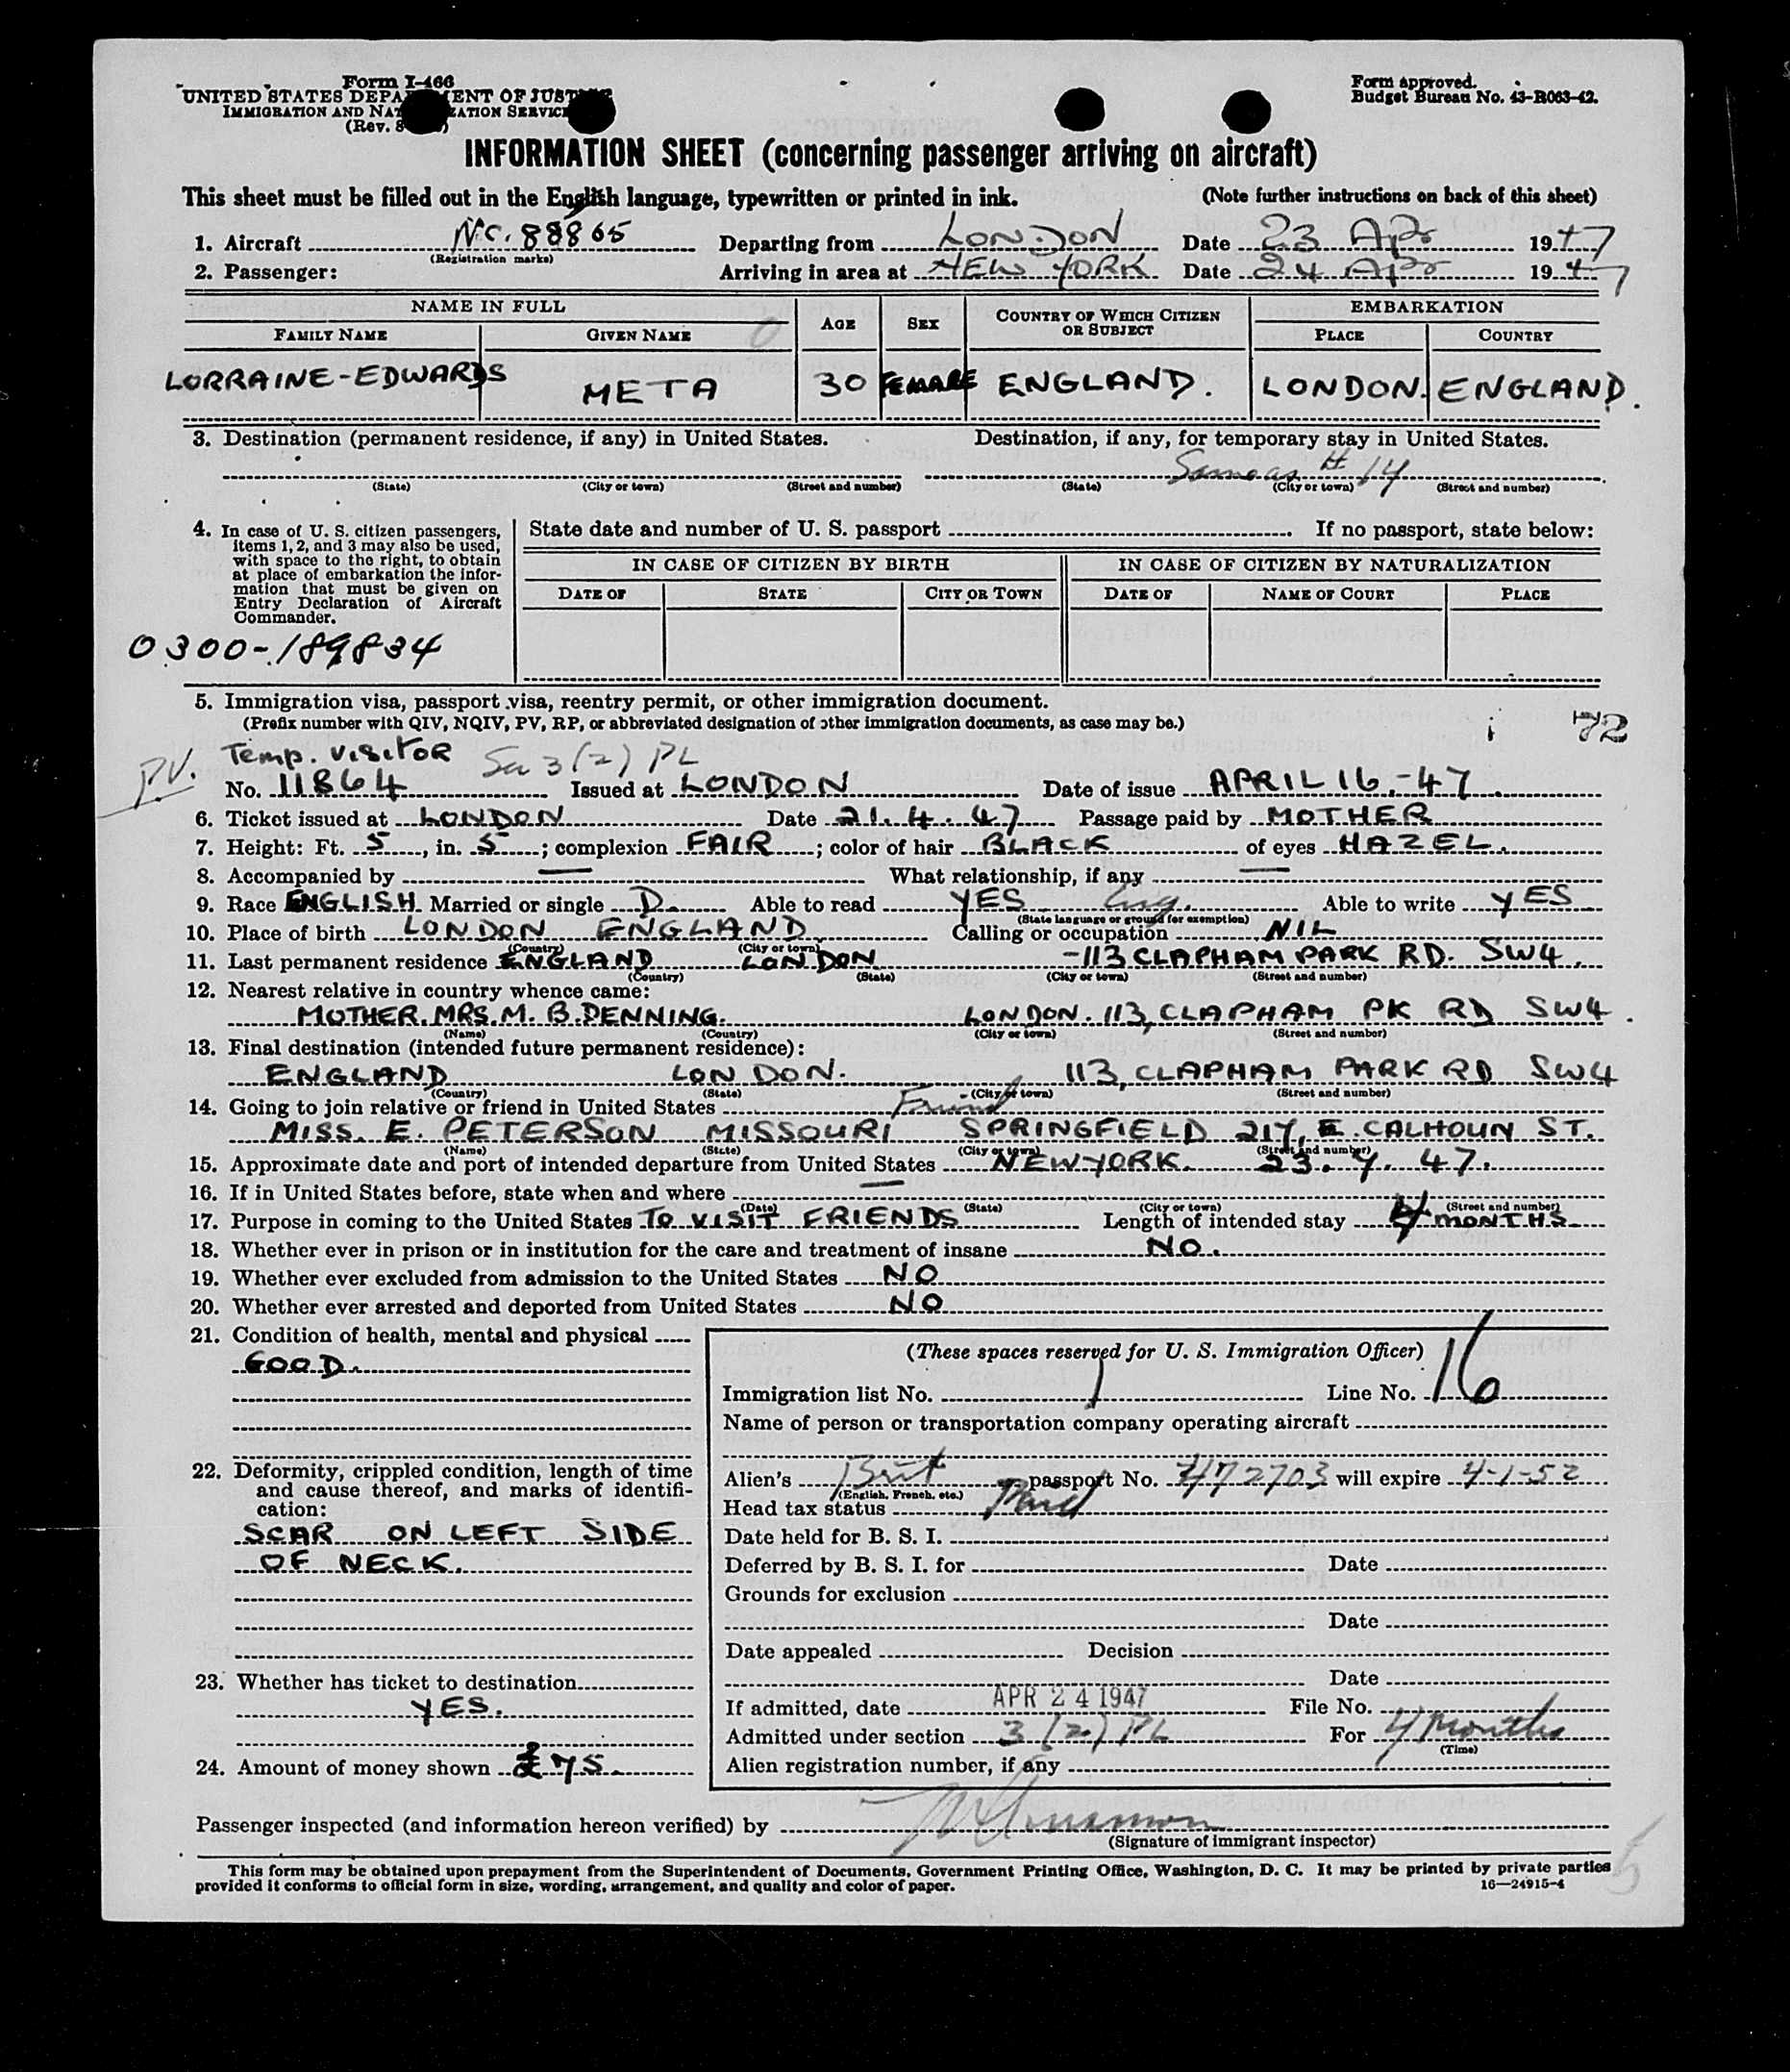 Form I-466
UNITED STATES DEPA ENT OF JUST
IMMIGRATION AND NAT ZATION SERVICE
(Rev. 8 )
Form approved.
Budget Bureau No. 43-R063-42.
INFORMATION SHEET (concerning passenger arriving on aircraft)
This sheet must be filled out in the English language, typewritten or printed in ink. (Note further instructions on back of this sheet)
1. Aircraft N.C. 88865 Departing from LONDON Date 23 Apr 1947
(Registration marks)
2. Passenger: Arriving in area at NEW YORK Date 24 Apr 1947
NAME IN FULL AGE SEX COUNTRY OF WHICH CITIZEN OR SUBJECT EMBARKATION
FAMILY NAME GIVEN NAME PLACE COUNTRY
LORRAINE-EDWARDS META 30 FEMALE ENGLAND. LONDON. ENGLAND.
3. Destination (permanent residence, if any) in United States. Destination, if any, for temporary stay in United States.
Same as # 14
(State) (City or town) (Street and number) (State) (City or town) (Street and number)
4. In case of U. S. citizen passengers,
items 1, 2, and 3 may also be used,
with space to the right, to obtain
at place of embarkation the infor-
mation that must be given on
Entry Declaration of Aircraft
Commander.
0300-189834
State date and number of U. S. passport . If no passport, state below:
IN CASE OF CITIZEN BY BIRTH IN CASE OF CITIZEN BY NATURALIZATION
DATE OF STATE CITY OR TOWN DATE OF NAME OF COURT PLACE
5. Immigration visa, passport visa, reentry permit, or other immigration document.
(Prefix number with QIV, NQIV, PV, RP, or abbreviated designation of other immigration documents, as case may be.)
72
P.V. Temp. VISITOR 3(2) PL
No. 11864 Issued at LONDON Date of issue APRIL 16.-47.
6. Ticket issued at LONDON Date 21.4.47 Passage paid by MOTHER
7. Height: Ft. 5, in. 5; complexion FAIR; color of hair BLACK of eyes HAZEL.
8. Accompanied by — What relationship, if any —
9. Race ENGLISH Married or single D. Able to read YES Eng. Able to write YES
(State language or ground for exemption)
10. Place of birth LONDON ENGLAND Calling or occupation NIL
(Country) (City or town)
11. Last permanent residence ENGLAND LONDON -113 CLAPHAM PARK RD. SW4.
(Country) (State) (City or town) (Street and number)
12. Nearest relative in country whence came:
MOTHER. MRS. M. B. DENNING. LONDON. 113, CLAPHAM PK RD SW4.
(Name) (Country) (City or town) (Street and number)
13. Final destination (intended future permanent residence):
ENGLAND LONDON. 113, CLAPHAM PARK RD SW4
(Country) (State) (City or town) (Street and number)
14. Going to join relative or friend in United States Friend
MISS. E. PETERSON MISSOURI SPRINGFIELD 217, E. CALHOUN ST.
(Name) (State) (City or town) (Street and number)
15. Approximate date and port of intended departure from United States NEW YORK. 23.7.47.
16. If in United States before, state when and where —
(Date) (State) (City or town) (Street and number)
17. Purpose in coming to the United States TO VISIT FRIENDS Length of intended stay 4 MONTHS
18. Whether ever in prison or in institution for the care and treatment of insane NO.
19. Whether ever excluded from admission to the United States NO
20. Whether ever arrested and deported from United States NO
21. Condition of health, mental and physical
GOOD.
22. Deformity, crippled condition, length of time
and cause thereof, and marks of identifi-
cation:
SCAR ON LEFT SIDE
OF NECK.
23. Whether has ticket to destination
YES.
24. Amount of money shown £75.
(These spaces reserved for U. S. Immigration Officer)
Immigration list No. 1 Line No. 16
Name of person or transportation company operating aircraft
Alien's Brit passport No. 472703 will expire 4-1-52
(English, French, etc.)
Head tax status Paid
Date held for B. S. I.
Deferred by B. S. I. for Date
Grounds for exclusion
Date
Date appealed Decision
Date
If admitted, date APR 24 1947 File No.
Admitted under section 3(2) PL For 4 Months
(Time)
Alien registration number, if any
Passenger inspected (and information hereon verified) by
(Signature of immigrant inspector)
This form may be obtained upon prepayment from the Superintendent of Documents, Government Printing Office, Washington, D. C. It may be printed by private parties
provided it conforms to official form in size, wording, arrangement, and quality and color of paper. 16—24915-4